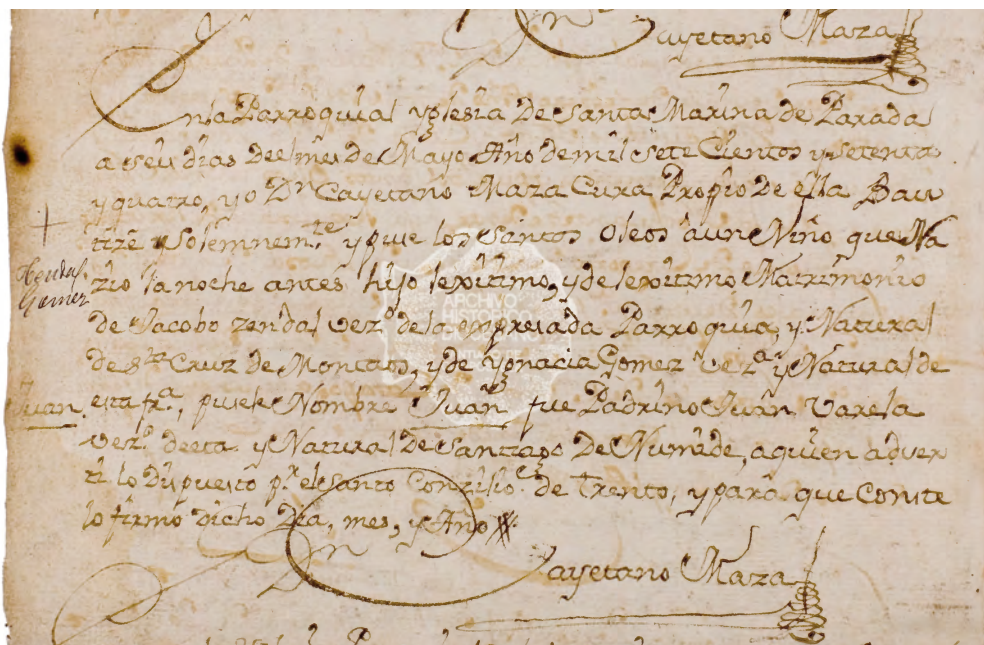 Cayetano Maza
En la Parroquial Yglesia De Santa Marina de Parada
a seis dias deel mes de Mayo Año de mil sete Cientos y setenta
y quatro, yo Dn Cayetano Maza Cura Propio De ella Bau
tizé solemnem.te y puse los Santos Oleos â un Niño que Na
zio la noche antes hijo lexitimo, y de lexitimo Matrimonio
de Jacobo zendal vez.o de la expresada Parroquia, y Natural
de S.ta Cruz de Montaos, y de Ygnacia Gomez vez.a y Natural de
esta fr.a, pusele Nombre Juan fue Padrino Juan Varela
vez.o de esta y Natural De Santiago De Numide, a quien adver
ti lo Dispuesto p.r el Santo Conzilio de Trento, y para que Conste
lo firmo dicho Dia, mes, y Año
Dn Cayetano Maza
Gomez
Juan
ARCHIVO
HISTÓRICO
DIOCESANO